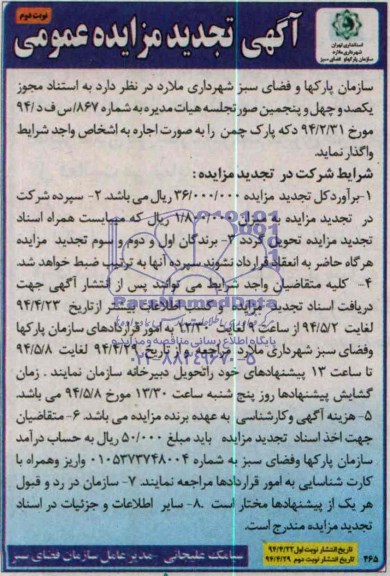 نوبت دوم
آگهی تجدید مزایده عمومی
استانداری تهران
شهرداری ملارد
سازمان پارکها و فضای سبز
سازمان پارکها و فضای سبز شهرداری ملارد در نظر دارد به استناد مجوز
یکصد و چهل و پنجمین صورتجلسه هیات مدیره به شماره ۸۶۷/س ف د/۹۴
مورخ ۹۴/۲/۳۱ دکه پارک چمن را به صورت اجاره به اشخاص واجد شرایط
واگذار نماید.
شرایط شرکت در تجدید مزایده :
۱-برآورد کل تجدید مزایده ۳۶/۰۰۰/۰۰۰ ریال می باشد. ۲- سپرده شرکت
در تجدید مزایده به میزان ۱/۸۰۰/۰۰۰ ریال که میبایست همراه اسناد
تجدید مزایده تحویل گردد ۳-برندگان اول و دوم و سوم تجدید مزایده
هرگاه حاضر به انعقاد قرارداد نشوند سپرده آنها به ترتیب ضبط خواهد شد.
۴- کلیه متقاضیان واجد شرایط می توانند پس از انتشار آگهی جهت
دریافت اسناد تجدید مزایده و اطلاعات بیشتر از تاریخ ۹۴/۴/۲۳
لغایت ۹۴/۵/۲ از ساعت ۸ لغایت ۱۳/۳۰ به امور قراردادهای سازمان پارکها
وفضای سبز شهرداری ملارد مراجعه و از تاریخ ۹۴/۴/۲۹ لغایت ۹۴/۵/۸
تا ساعت ۱۳ پیشنهادهای خود راتحویل دبیرخانه سازمان نمایند . زمان
گشایش پیشنهادها روز پنج شنبه ساعت ۱۳/۳۰ مورخ ۹۴/۵/۸ می باشد.
۵-هزینه آگهی وکارشناسی به عهده برنده مزایده می باشد. ۶- متقاضیان
جهت اخذ اسناد تجدید مزایده باید مبلغ ۵۰/۰۰۰ ریال به حساب درآمد
سازمان پارکها وفضای سبز به شماره ۰۱۰۵۳۷۳۷۴۸۰۰۴ واریز وهمراه با
کارت شناسایی به امور قراردادها مراجعه نمایند. ۷- سازمان در رد و قبول
هر یک از پیشنهادها مختار است .۸- سایر اطلاعات و جزئیات در اسناد
تجدید مزایده مندرج است.
تاریخ انتشار نوبت اول ۹۴/۴/۲۲
تاریخ انتشار نوبت دوم ۹۴/۴/۲۹
سیامک علیجانی - مدیرعامل سازمان فضای سبز
۴۶۵
ParsNamadData
پایگاه اطلاع رسانی مناقصه و مزایده
۰۲۱-۸۸۳۴۹۶۷۰-۵